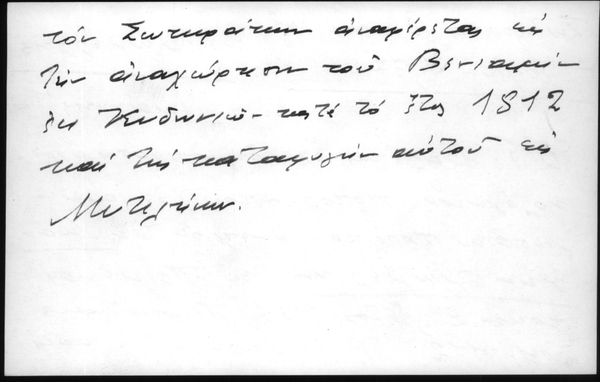 τόν Σωκράτην ἀναφέρεται εἰς
τήν ἀναχώρησιν τοῦ Βενιαμίν
ἐκ Κυδωνιῶν κατά τό ἔτος 1812
καί τήν καταφυγήν αὐτοῦ εἰς
Μυτιλήνην.